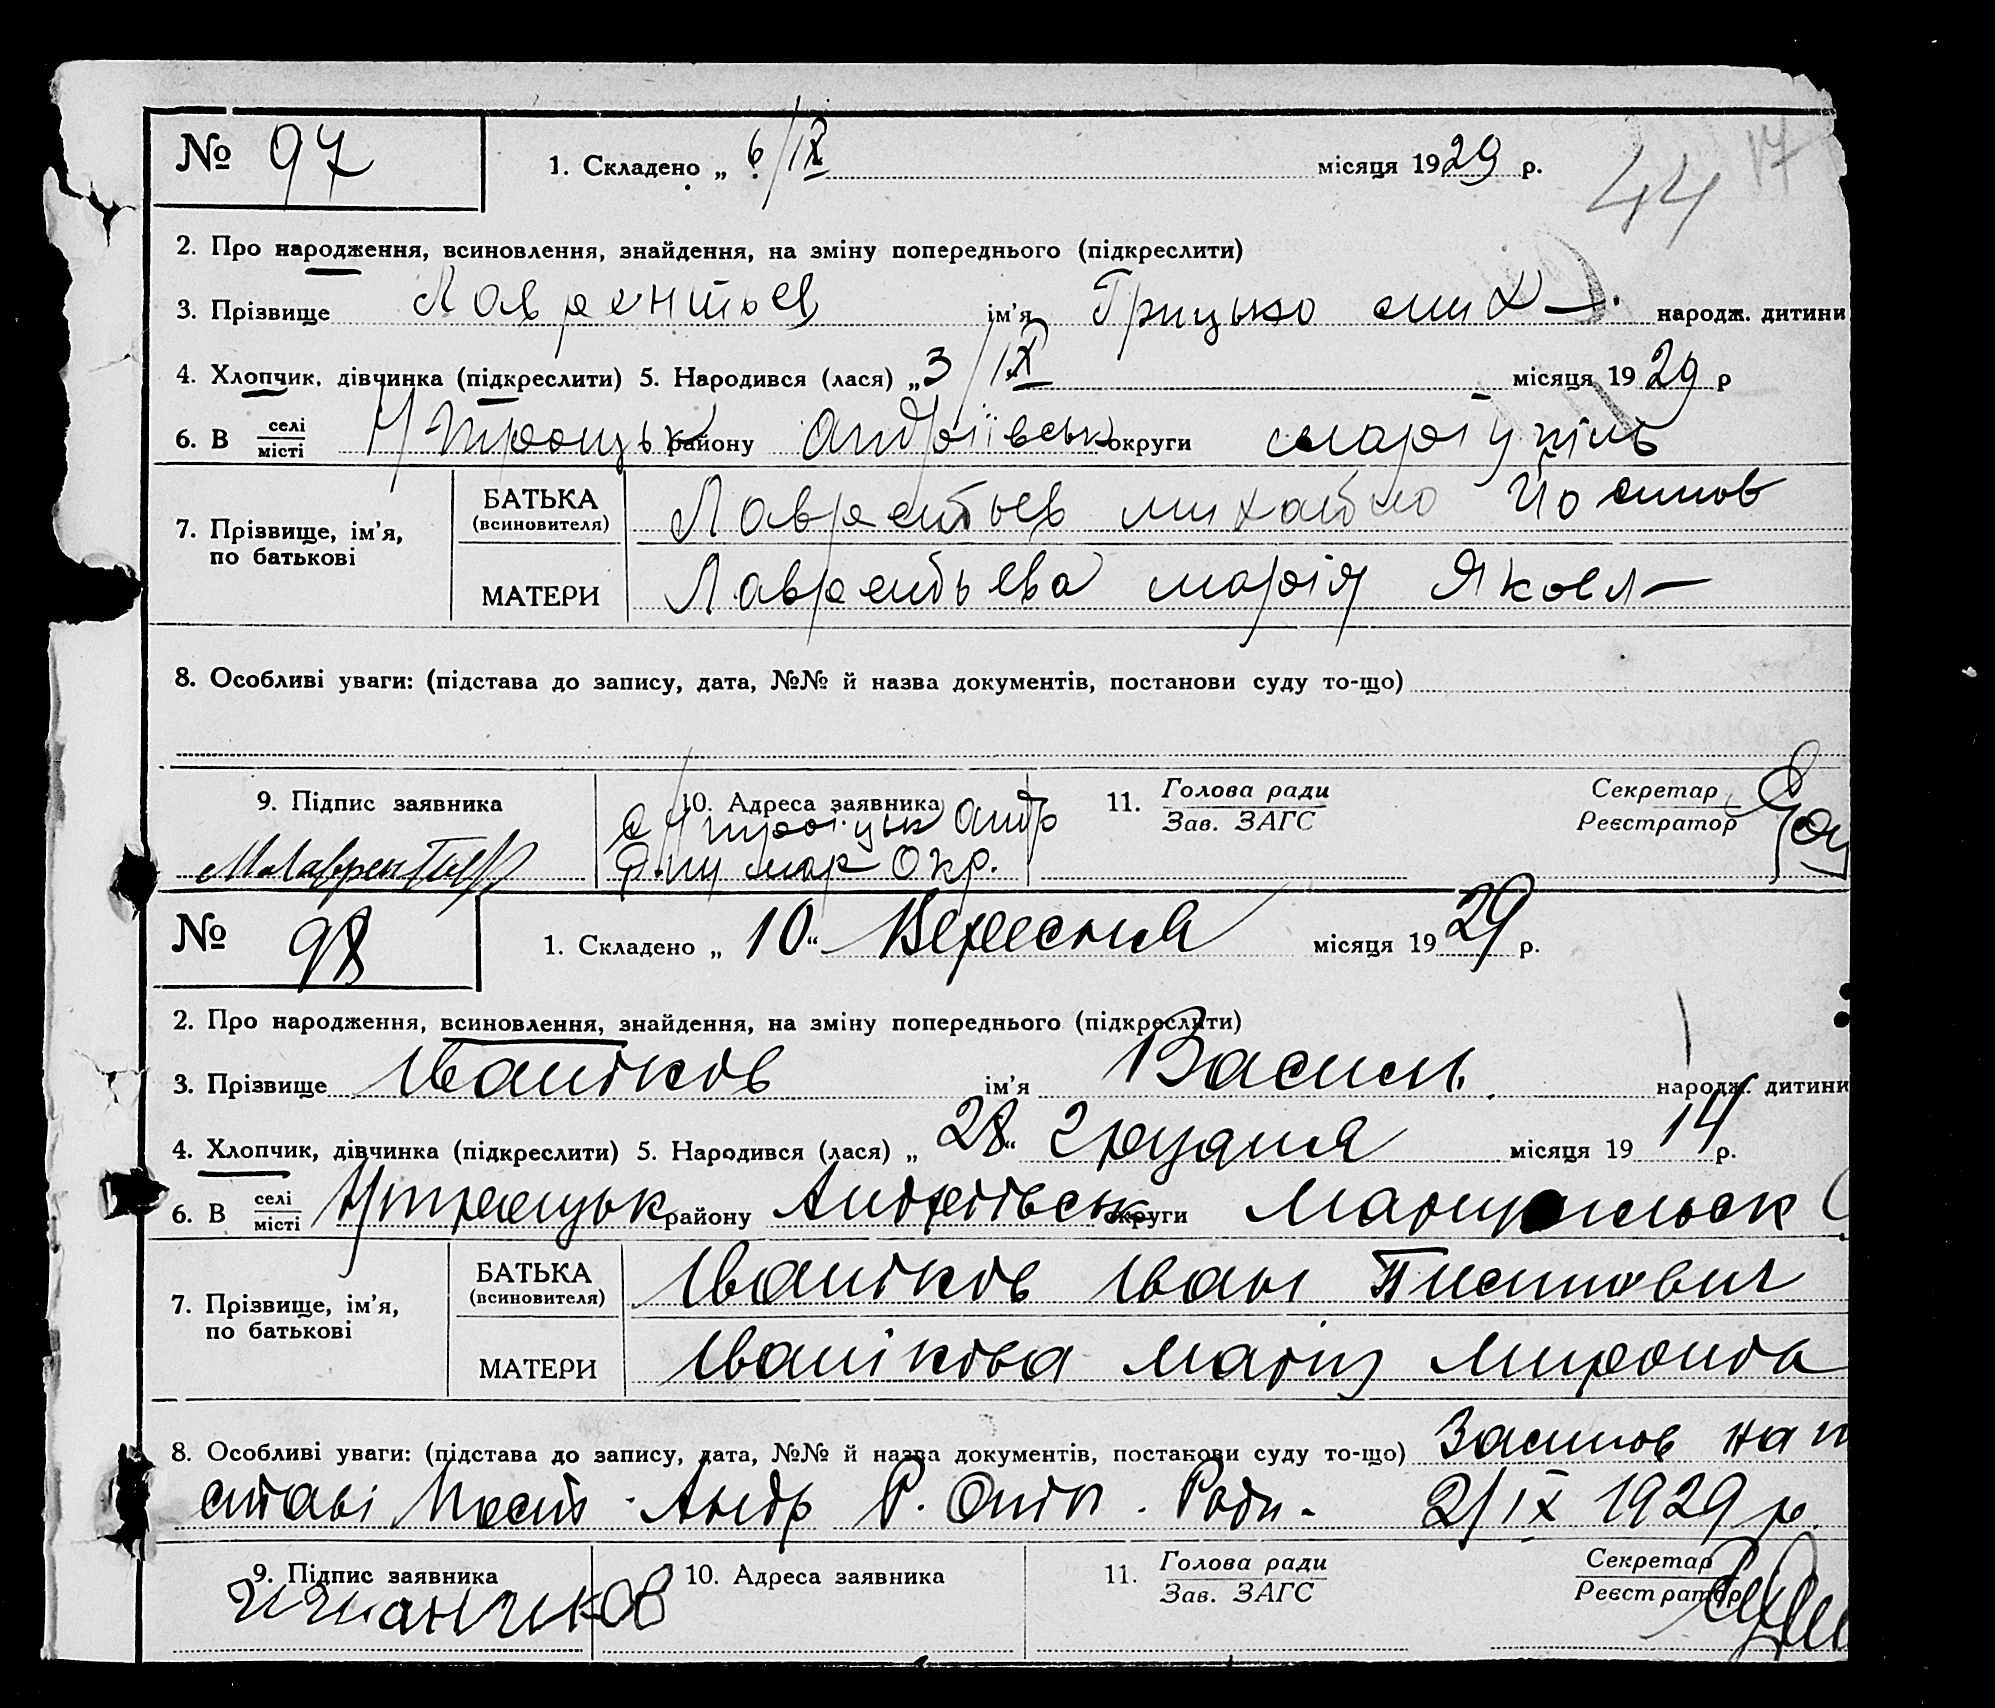 17
44
№ 97 1. Складено „ 6/IX місяця 1929 р.
2. Про народження, всиновлення, знайдення, на зміну попереднього (підкреслити)
3. Прізвище Лаврентьев ім'я Грицько мих народж. дитини
4. Хлопчик, дівчинка (підкреслити) 5. Народився (лася) „ 3/IX місяця 1929 р
6. В селі місті Н/Троицьк району Андріївськ округи маріупіль
7. Прізвище, ім'я, по батькові
БАТЬКА (всиновителя) Лаврентьев михайло Йосипов
МАТЕРИ Лаврентьева марія Яковл
8. Особливі уваги: (підстава до запису, дата, №№ й назва документів, постанови суду то-що)
9. Підпис заявника 10. Адреса заявника 11. Голова ради Зав. ЗАГС Секретар Реєстратор
с Н/троіцьк Андр
мар Окр.
№ 98 1. Складено „ 10 “ Вересня місяця 1929 р.
2. Про народження, всиновлення, знайдення, на зміну попереднього (підкреслити)
3. Прізвище Іваніков ім'я Василь народж. дитини
4. Хлопчик, дівчинка (підкреслити) 5. Народився (лася) „ 28 “ Грудня місяця 1914 р.
6. В селі місті Н/троицьк району Андріївськ округи Маріупільськ
7. Прізвище, ім'я, по батькові
БАТЬКА (всиновителя) Іваніков Іван
МАТЕРИ Іванікова Марія Миронів
8. Особливі уваги: (підстава до запису, дата, №№ й назва документів, постанови суду то-що) Засинов на п
ставі Пост. Андр Р. 2/IX 1929 р.
9. Підпис заявника 10. Адреса заявника 11. Голова ради Зав. ЗАГС Секретар Реєстратор